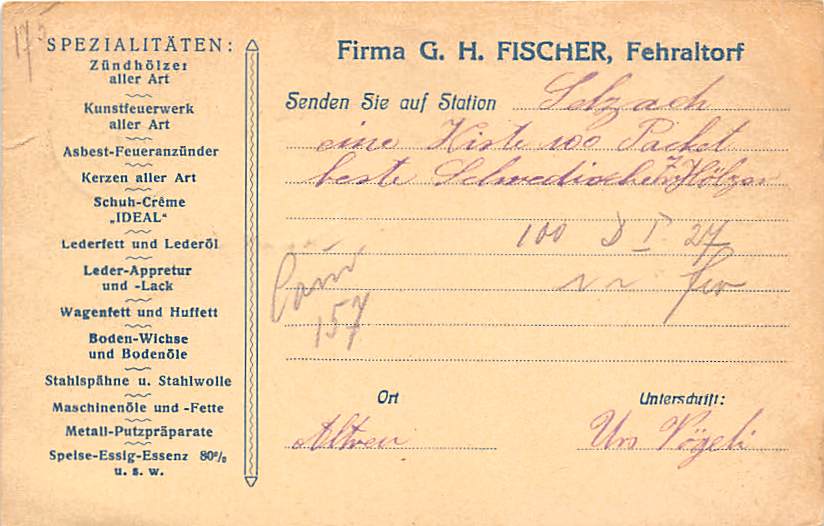 SPEZIALITÄTEN:
Zündhölzer
aller Art
Kunstfeuerwerk
aller Art
Asbest-Feueranzünder
Kerzen aller Art
Schuh-Crême
„IDEAL“
Lederfett und Lederöl
Leder-Appretur
und -Lack
Wagenfett und Huffett
Boden-Wichse
und Bodenöle
Stahlspähne u. Stahlwolle
Maschinenöle und -Fette
Metall-Putzpräparate
Speise-Essig-Essenz 80%
u. s. w.
Firma G. H. FISCHER, Fehraltorf
Senden Sie auf Station Selzach
eine Kiste 100 Packet
beste Schwedische Hölzer
100 I 27
157
Ort
Unterschrift:
Urs Vögeli